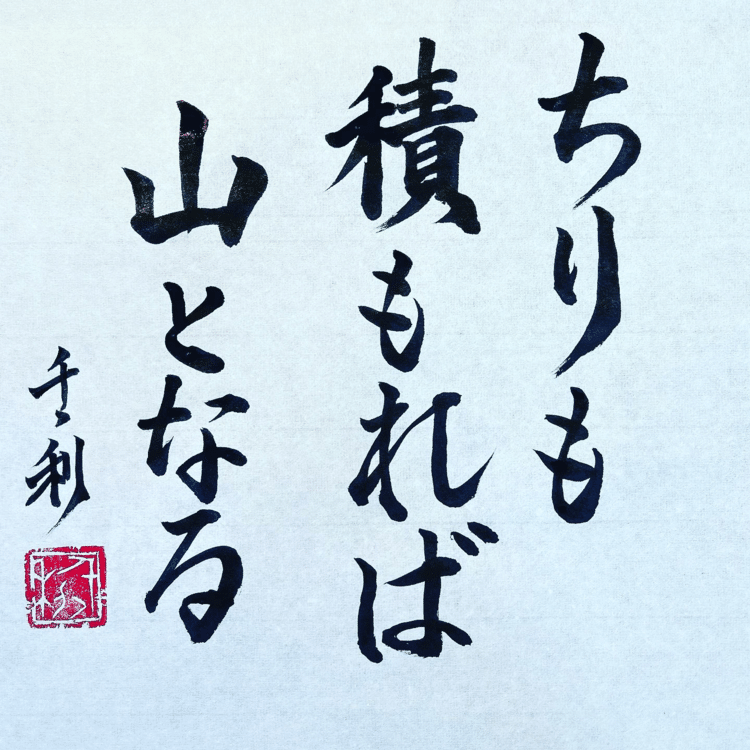 ちりも
積もれば
山となる
千利